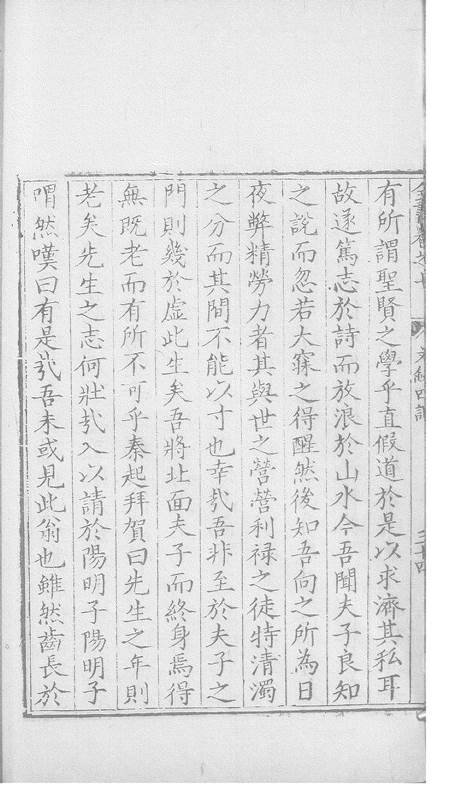 有所謂聖賢之學乎直假道於是以求濟其私耳
故遂篤志於詩而放浪於山水今吾聞夫子良知
之說而忽若大寐之得醒然後知吾向之所為日
夜弊精勞力者其與世之營營利禄之徒特清濁
之分而其間不能以寸也幸㢤吾非至於夫子之
門則幾於虛此生矣吾將北面夫子而終身焉得
無既老而有所不可乎秦起拜賀曰先生之年則
老矣先生之志何壯㢤入以請於陽明子陽明子
喟然嘆曰有是㢤吾未或見此翁也雖然齒長於